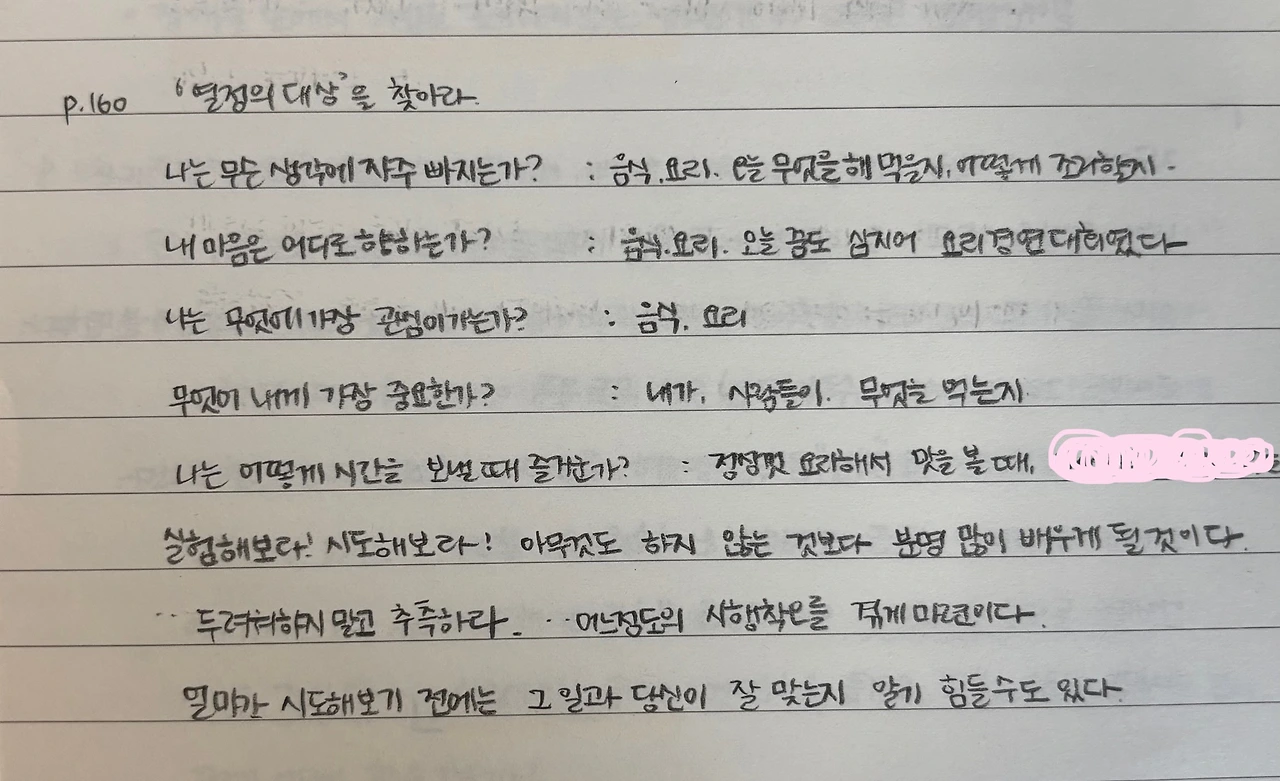 p.160 '열정의 대상'을 찾아라.
나는 무슨 생각에 자주 빠지는가? : 음식, 요리. 오늘 무엇을 해 먹을지, 어떻게 조리할지.
내 마음은 어디로 향하는가? : 음식, 요리. 오늘 꿈도 심지어 요리경연대회였다
나는 무엇에 가장 관심이 가는가? : 음식, 요리
무엇이 내게 가장 중요한가? : 내가, 사람들이 무엇을 먹는지
나는 어떻게 시간을 보낼 때 즐거운가? : 정성껏 요리해서 맛을 볼 때,
실험해보라! 시도해보라! 아무것도 하지 않는 것보다 분명 많이 배우게 될 것이다.
‥ 두려워하지 말고 추측하라. ‥ 어느정도의 시행착오를 겪게 마련이다.
얼마간 시도해보기 전에는 그 일과 당신이 잘 맞는지 알기 힘들 수도 있다.